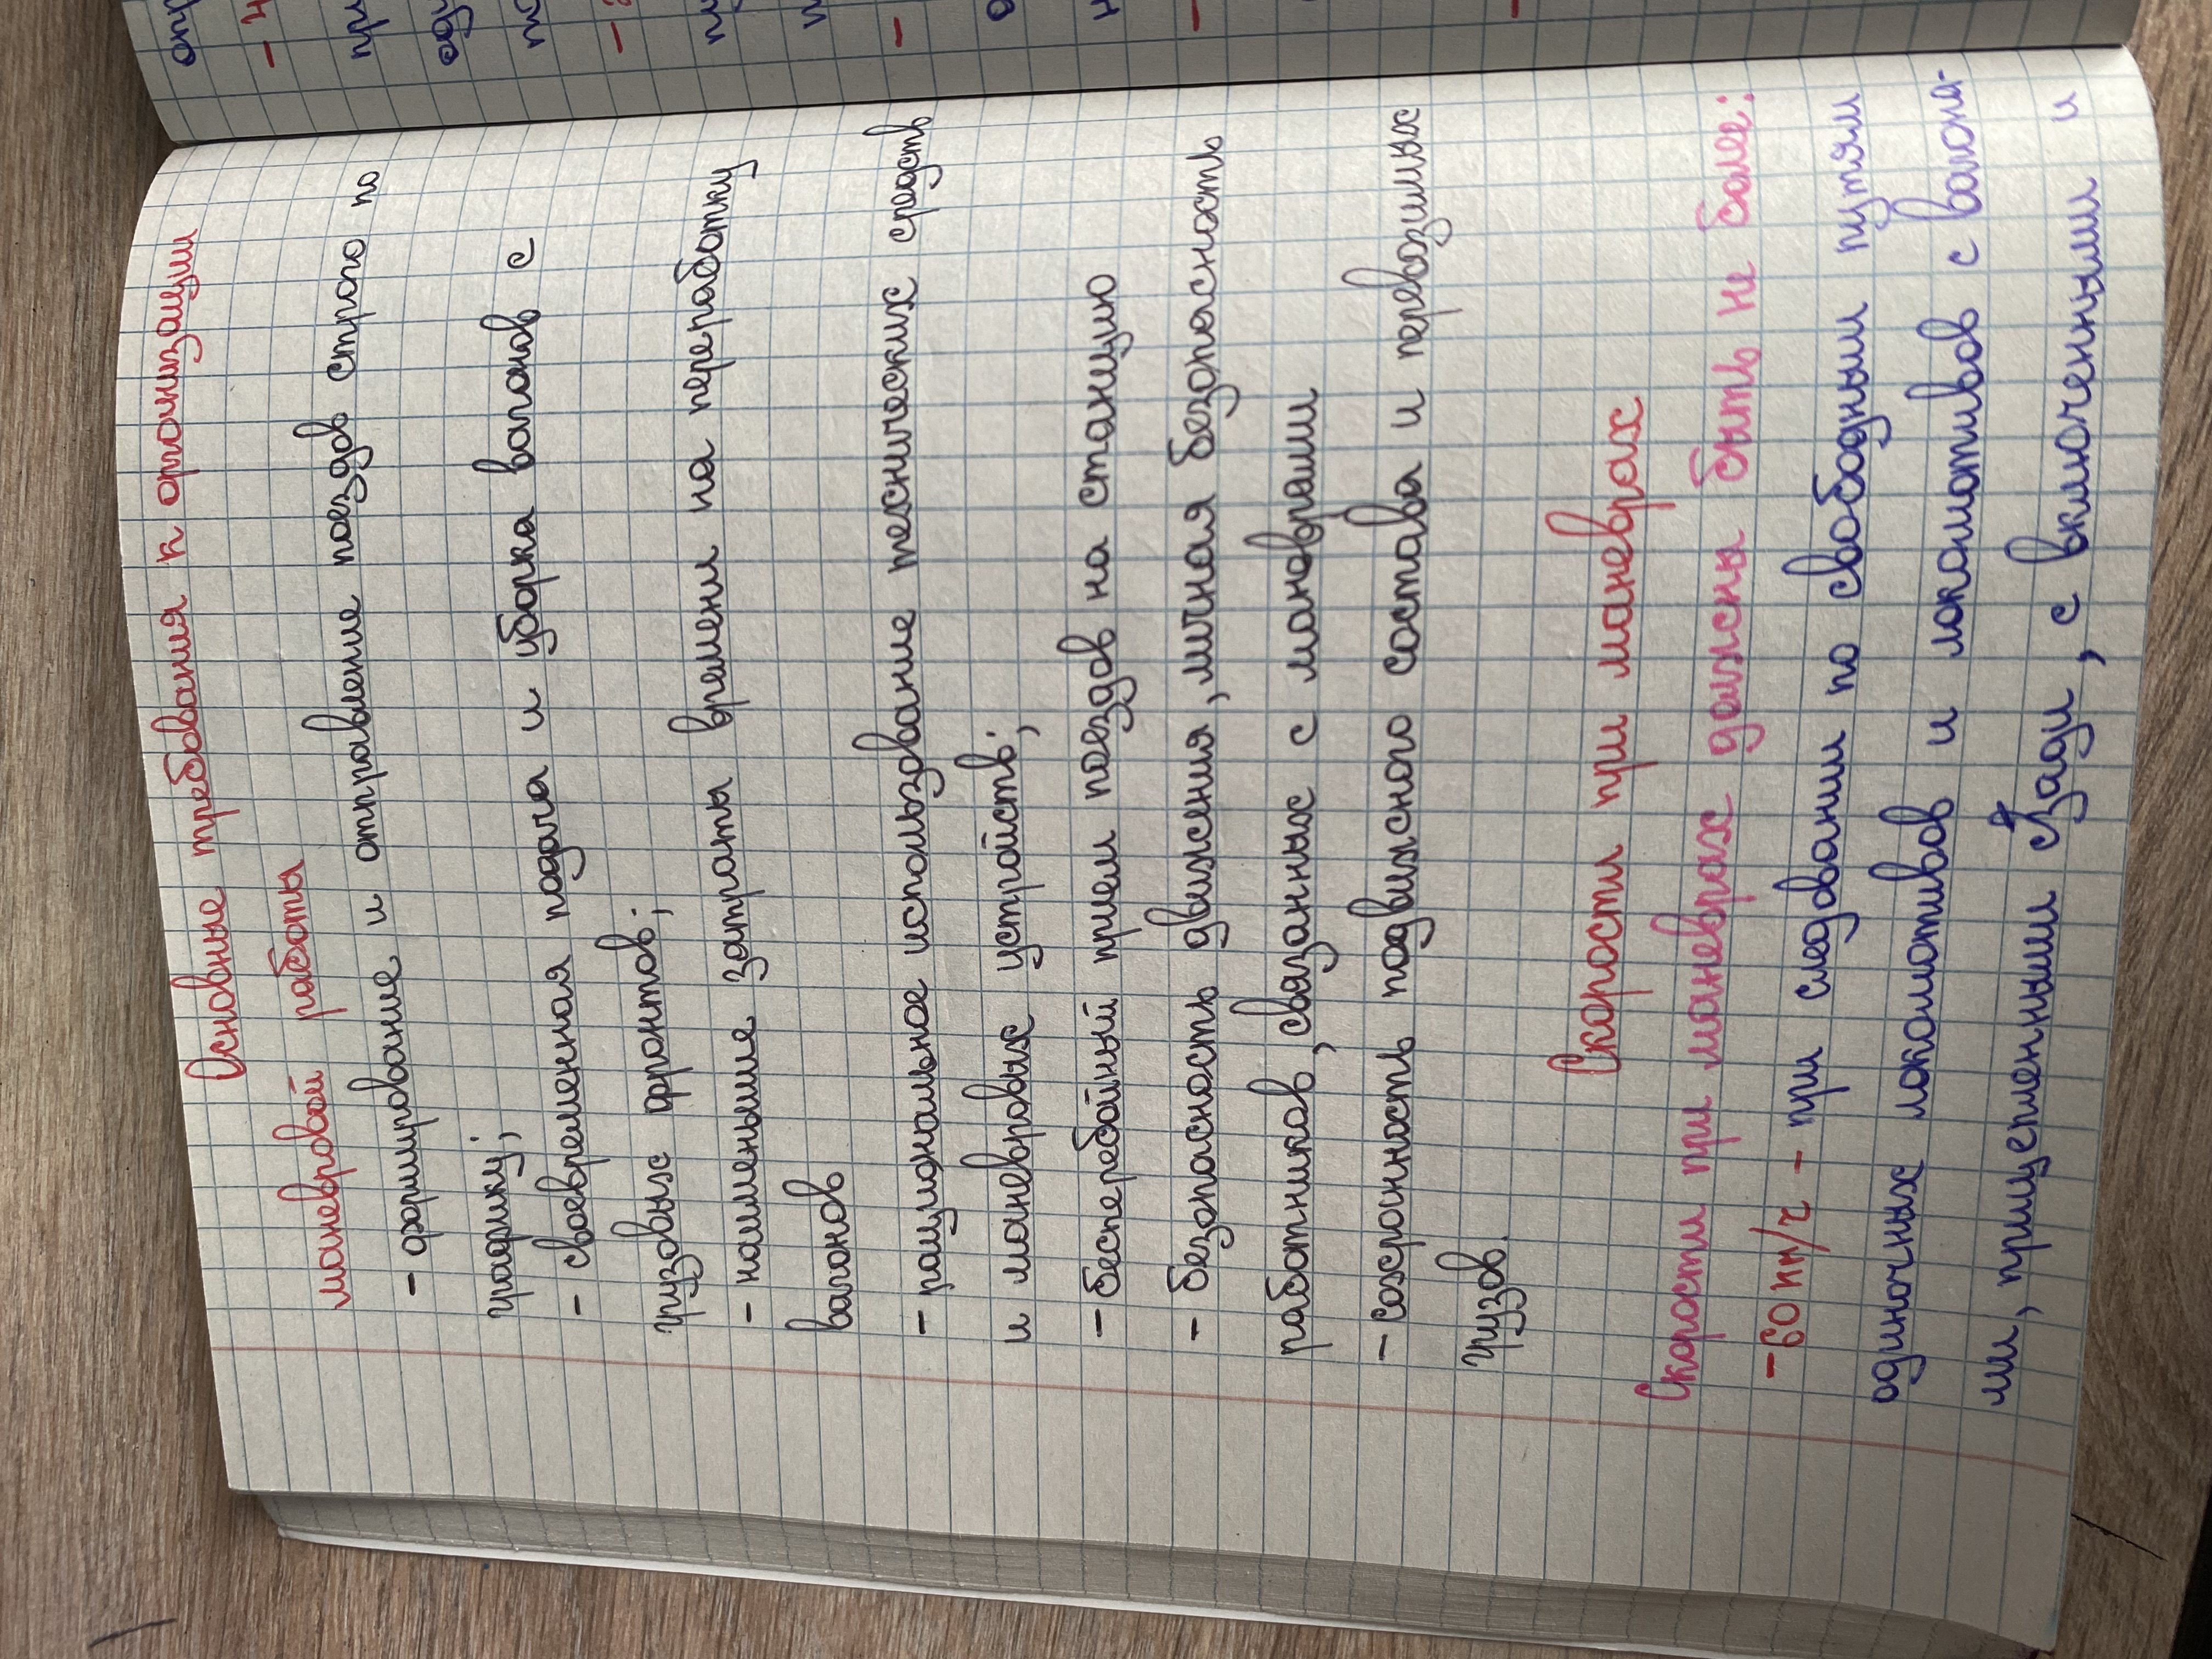 Основные требования к организации
маневровой работы
- формирование и отправление поездов строго по
графику;
- своевременная подача и уборка вагонов с
грузовых фронтов;
- наименьшие затраты времени на переработку
вагонов
- рациональное использование технических средств
и маневровых устройств;
- бесперебойный прием поездов на станцию
- безопасность движения, личная безопасность
работников, связанных с маневрами
- сохранность подвижного состава и перевозимых
грузов.
Скорости при маневрах
Скорости при маневрах должны быть не более:
- 60 км/ч - при следовании по свободным путям
одиночных локомотивов и локомотивов с вагона-
ми, прицепленными сзади, с включенными и